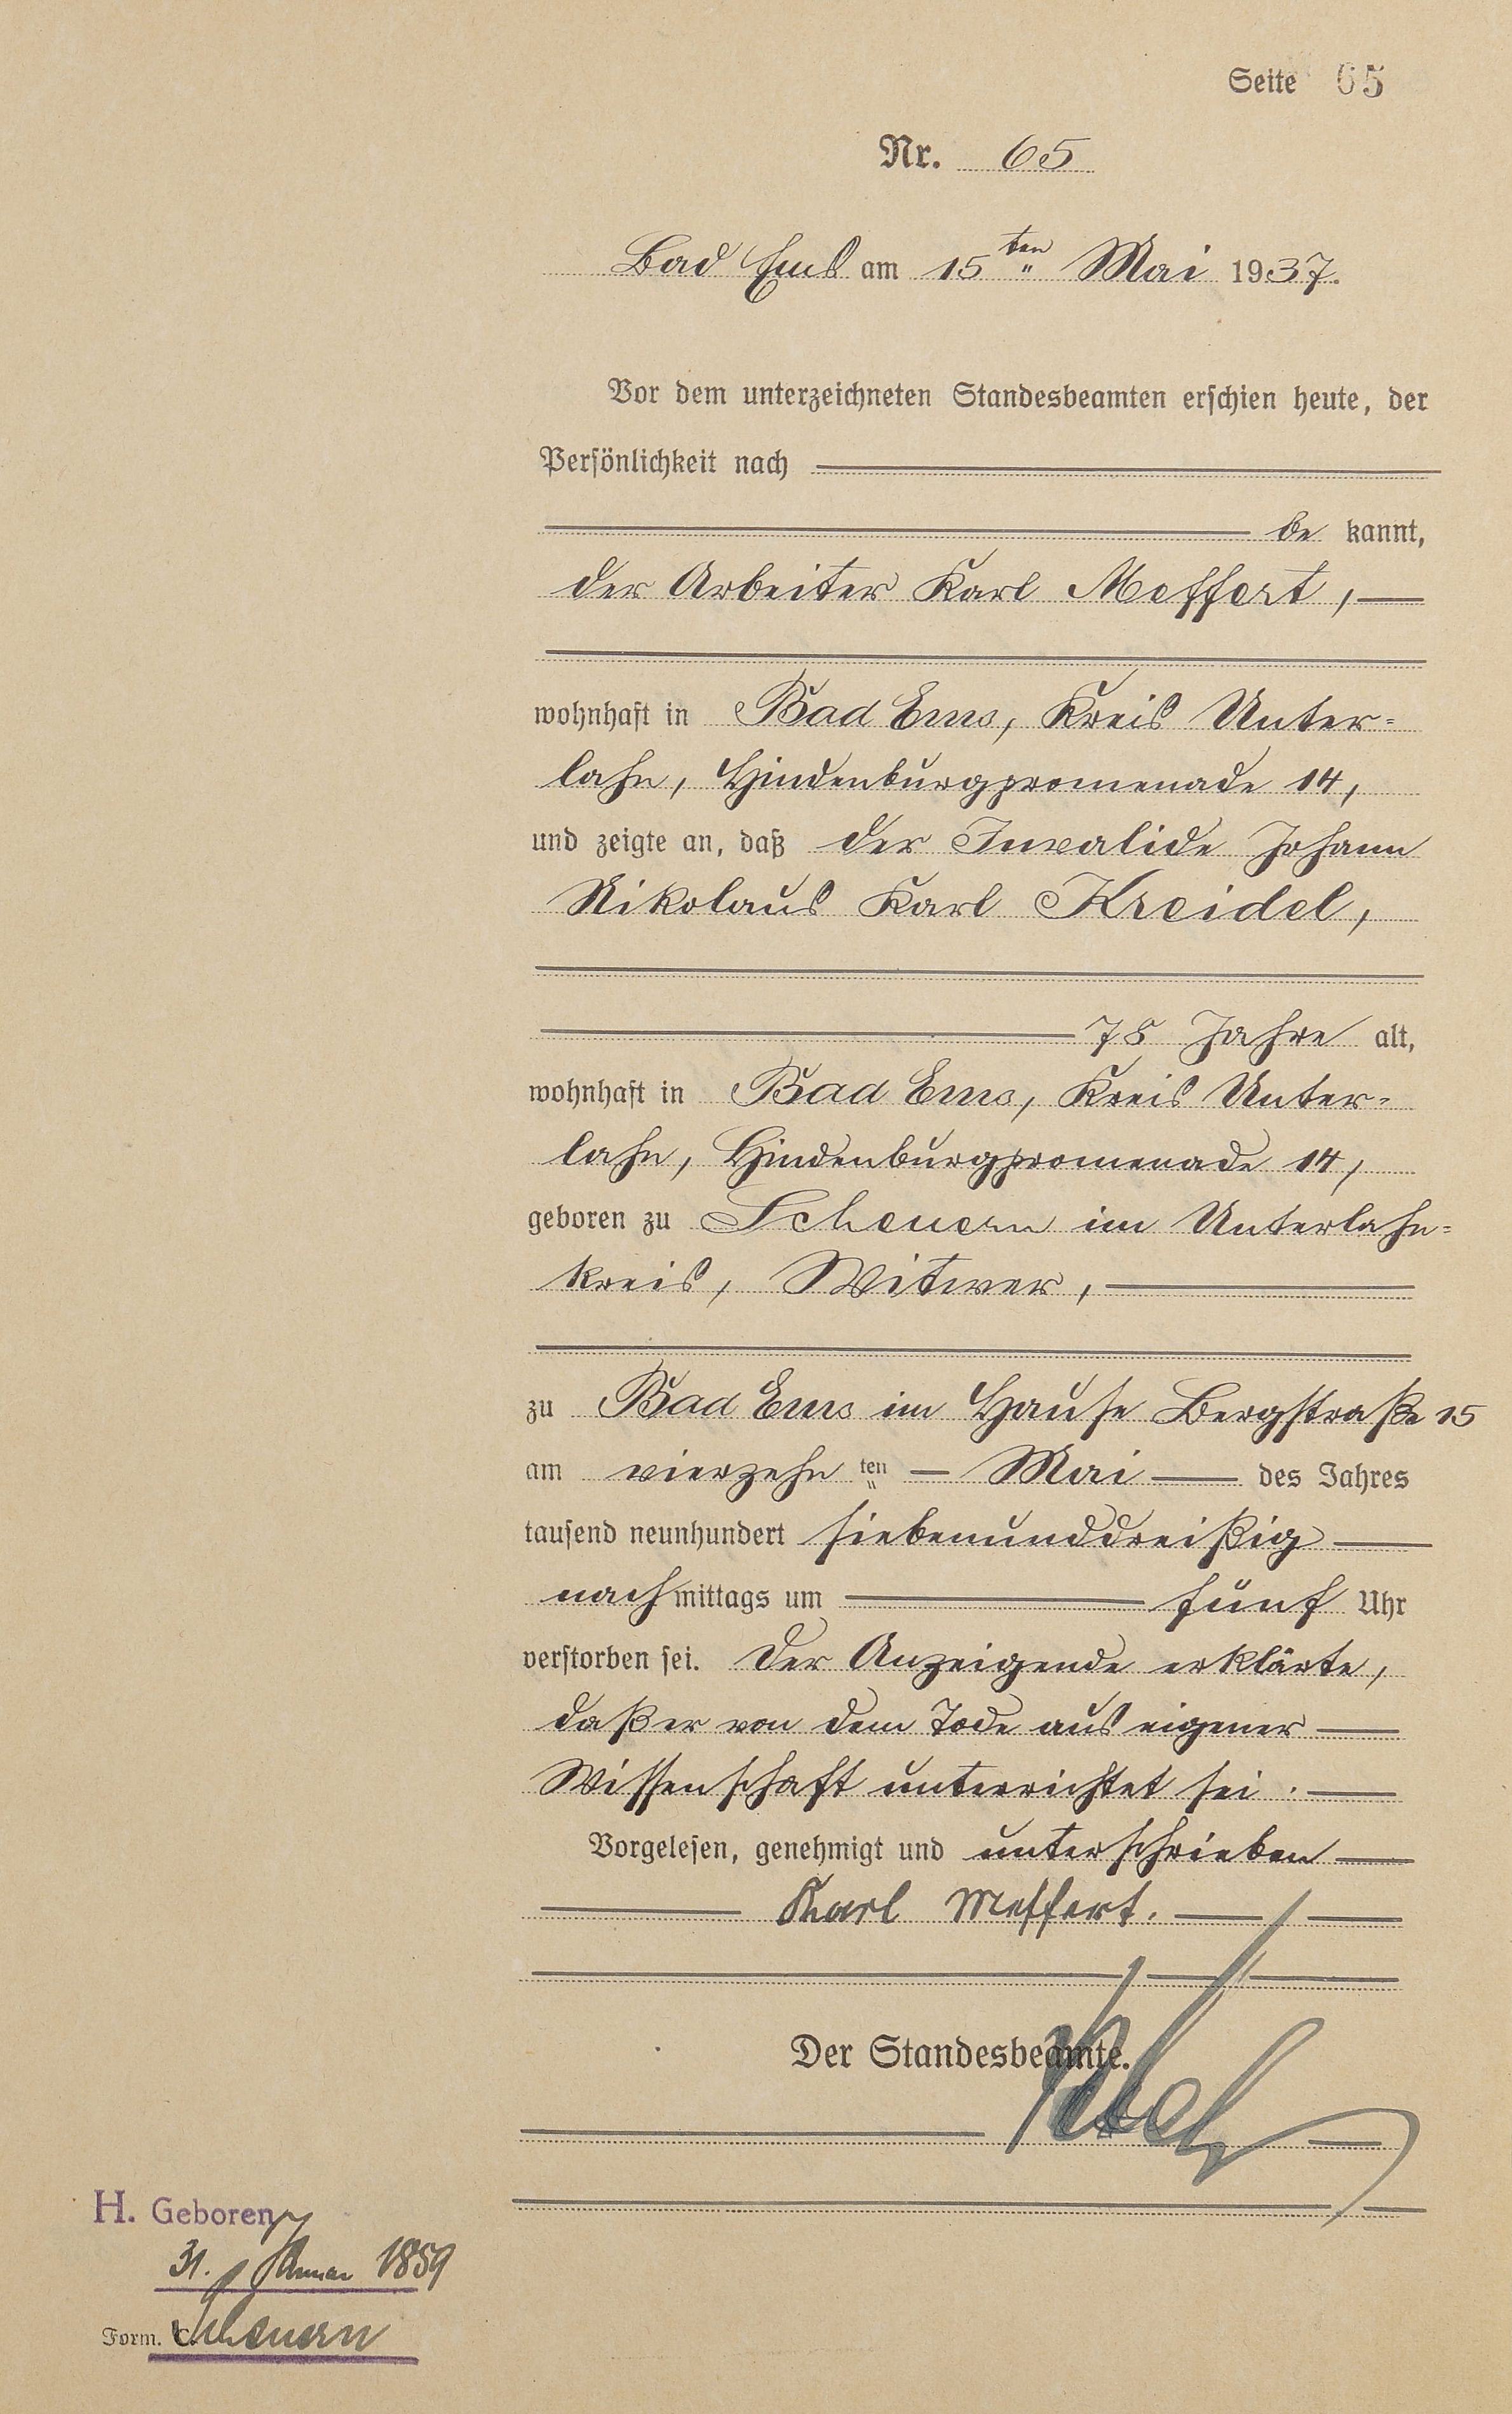 Seite 65
Nr. 65
Bad Ems am 15ten Mai 1937.
Vor dem unterzeichneten Standesbeamten erschien heute, der
Persönlichkeit nach
be kannt,
der Arbeiter Karl Meffert,
wohnhaft in Bad Ems, Kreis Unter=
lahn, Hindenburgpromenade 14,
und zeigte an, daß der Invalide Johann
Nikolaus Karl Kreidel,
78 Jahre alt,
wohnhaft in Bad Ems, Kreis Unter-
lahn, Hindenburgpromenade 14,
geboren zu Scheuern im Unterlahn=
kreis, Witwer,
zu Bad Ems im Hause Bergstraße 15
am vierzehn ten Mai des Jahres
tausend neunhundert siebenunddreißig
nachmittags um fünf Uhr
verstorben sei. Der Anzeigende erklärte,
daß er von dem Tode aus eigener
Wissenschaft unterrichtet sei.
Vorgelesen, genehmigt und unterschrieben
Karl Meffert.
Der Standesbeamte.
H. Geboren
31. Januar 1859
Form. C. Scheuern